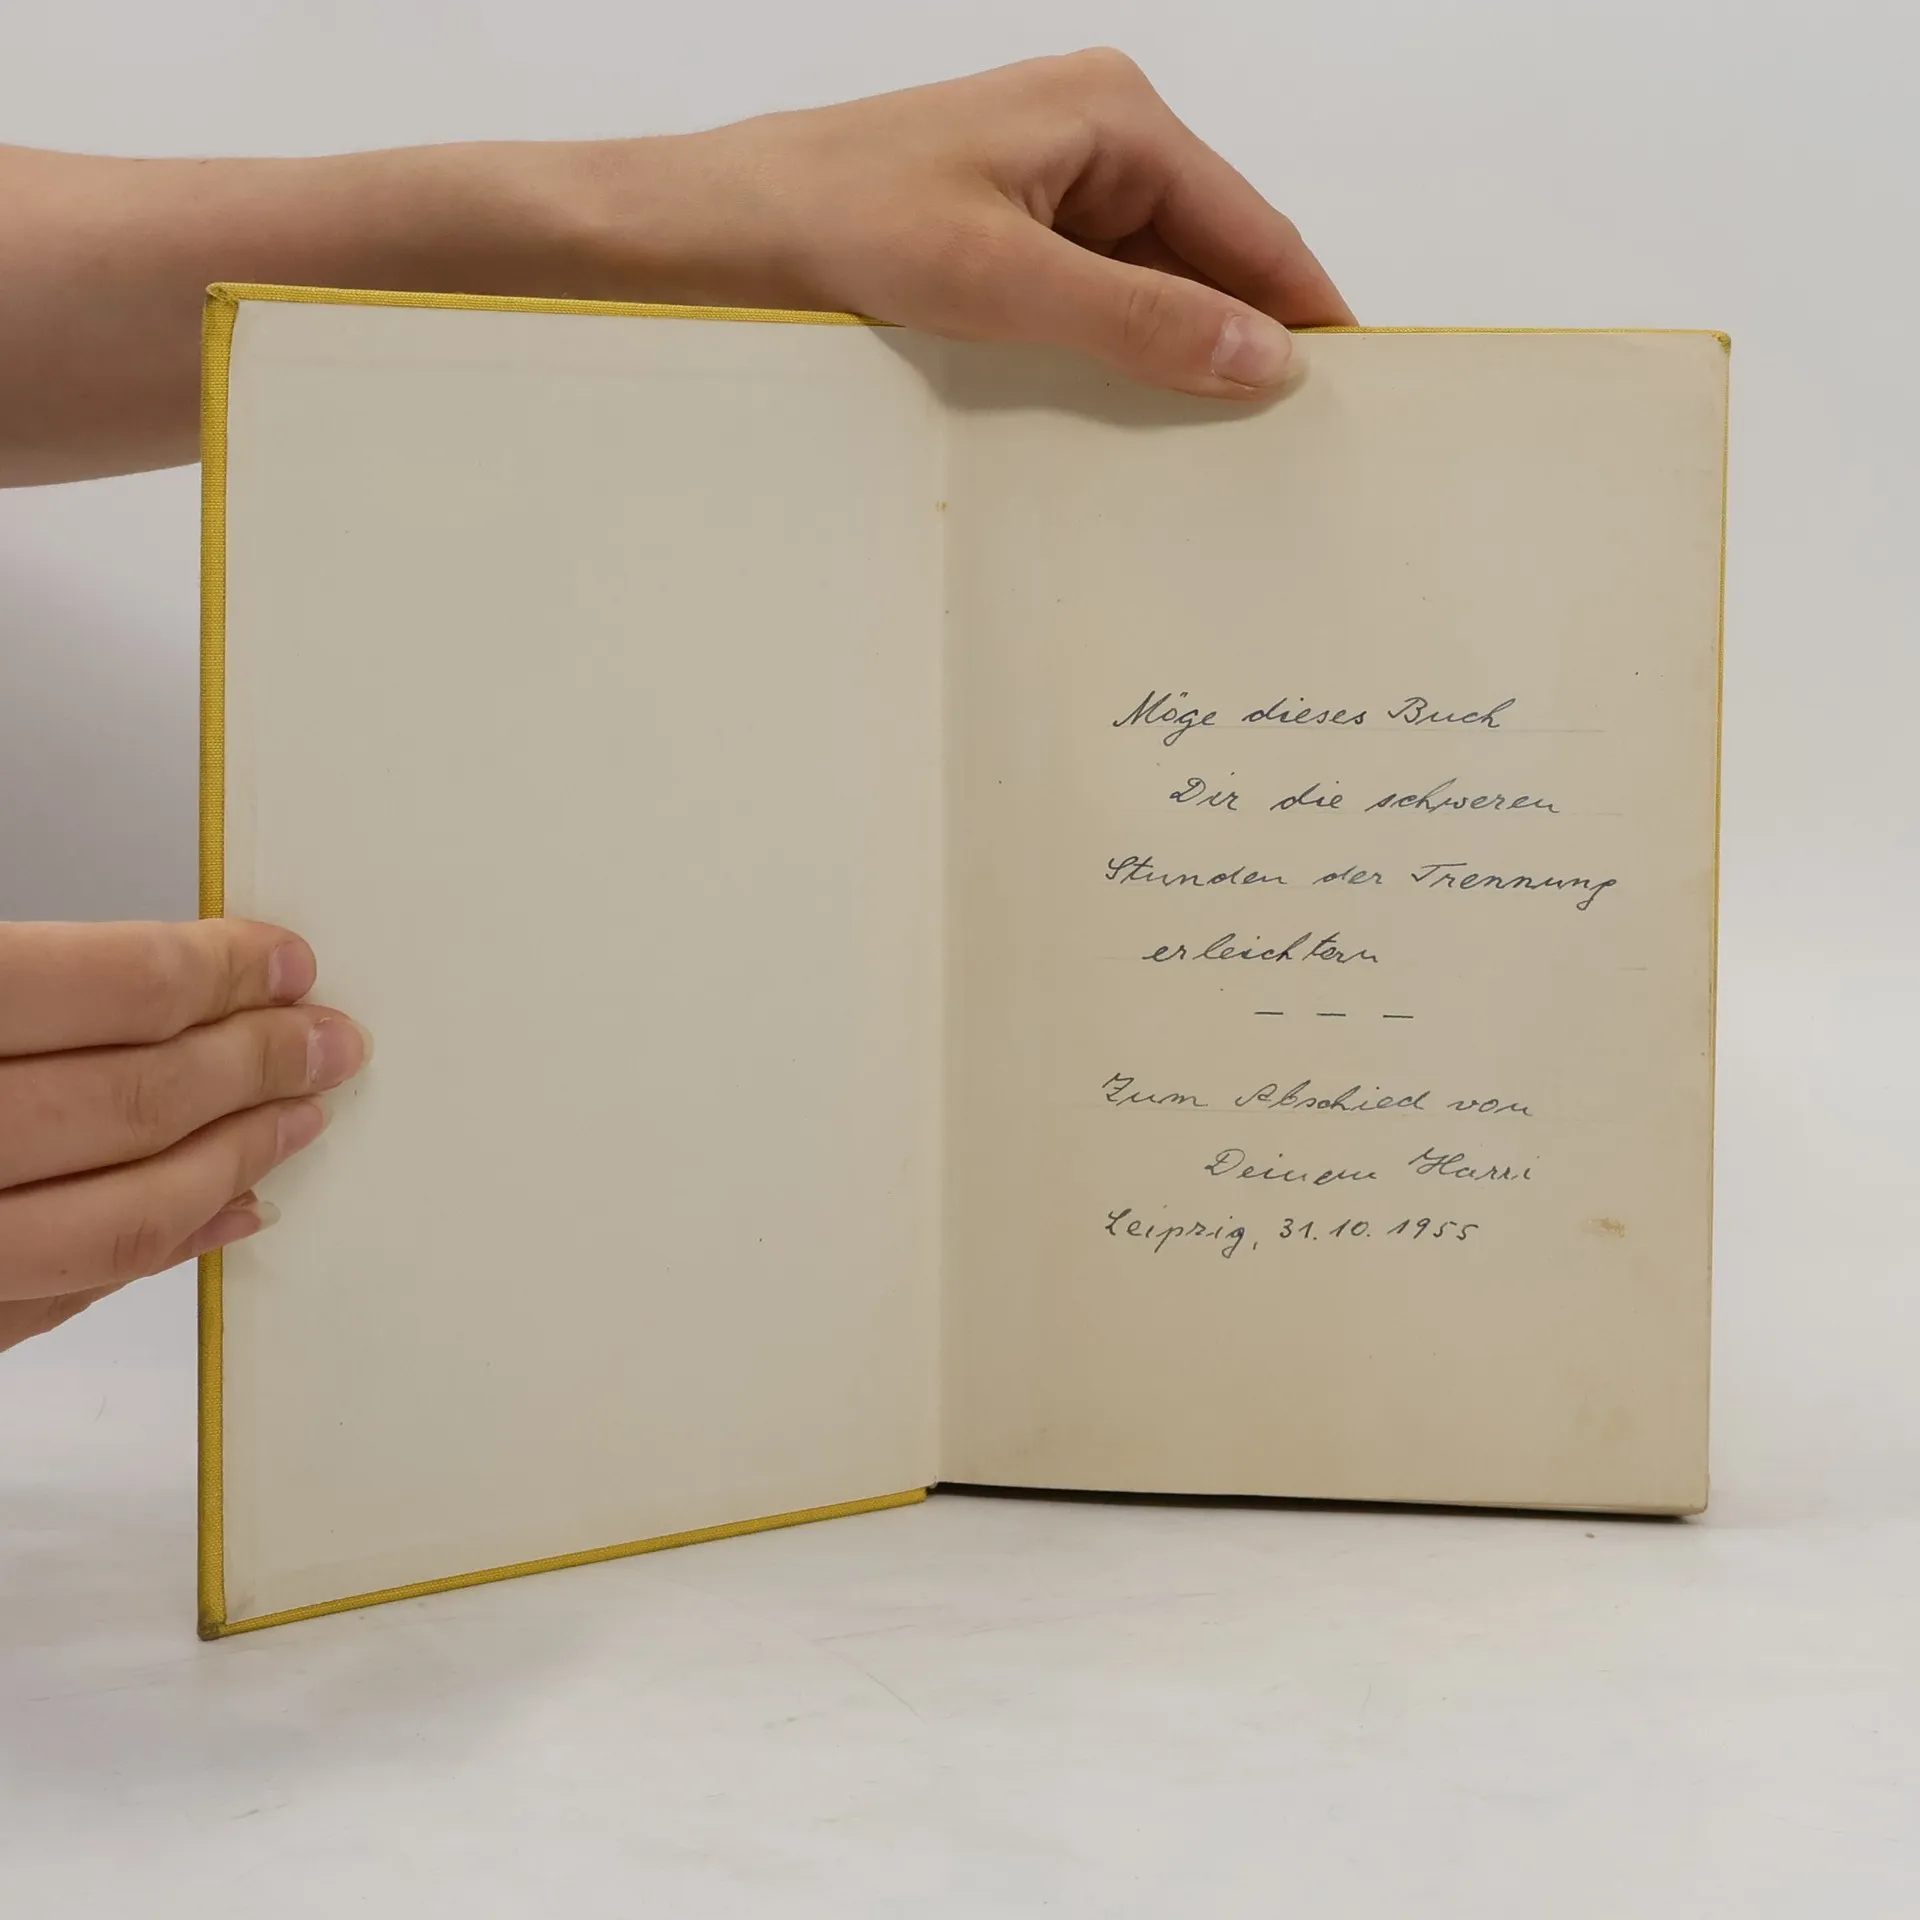 Möge dieses Buch
Dir die schweren
Stunden der Trennung
erleichtern
— — —
Zum Abschied von
Deinem Harri
Leipzig, 31. 10. 1955